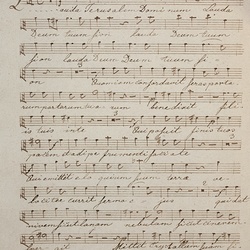 Lauda Jerusalem Dominum Lauda
Deum tuum Sion lauda Deum tuum
Sion lauda Deum Deum tuum Si-
on Quoniam confortavit seras porta-
rum portarum tuarum benedixit fili-
is tuis in te Qui posuit fines tuos
pacem adipe frumenti satiat te
Qui emittit eloquium suum terrae
velociter currit sermo ejus qui dat
nivem sicut lanam nebulam
Mittit Crystallum suam